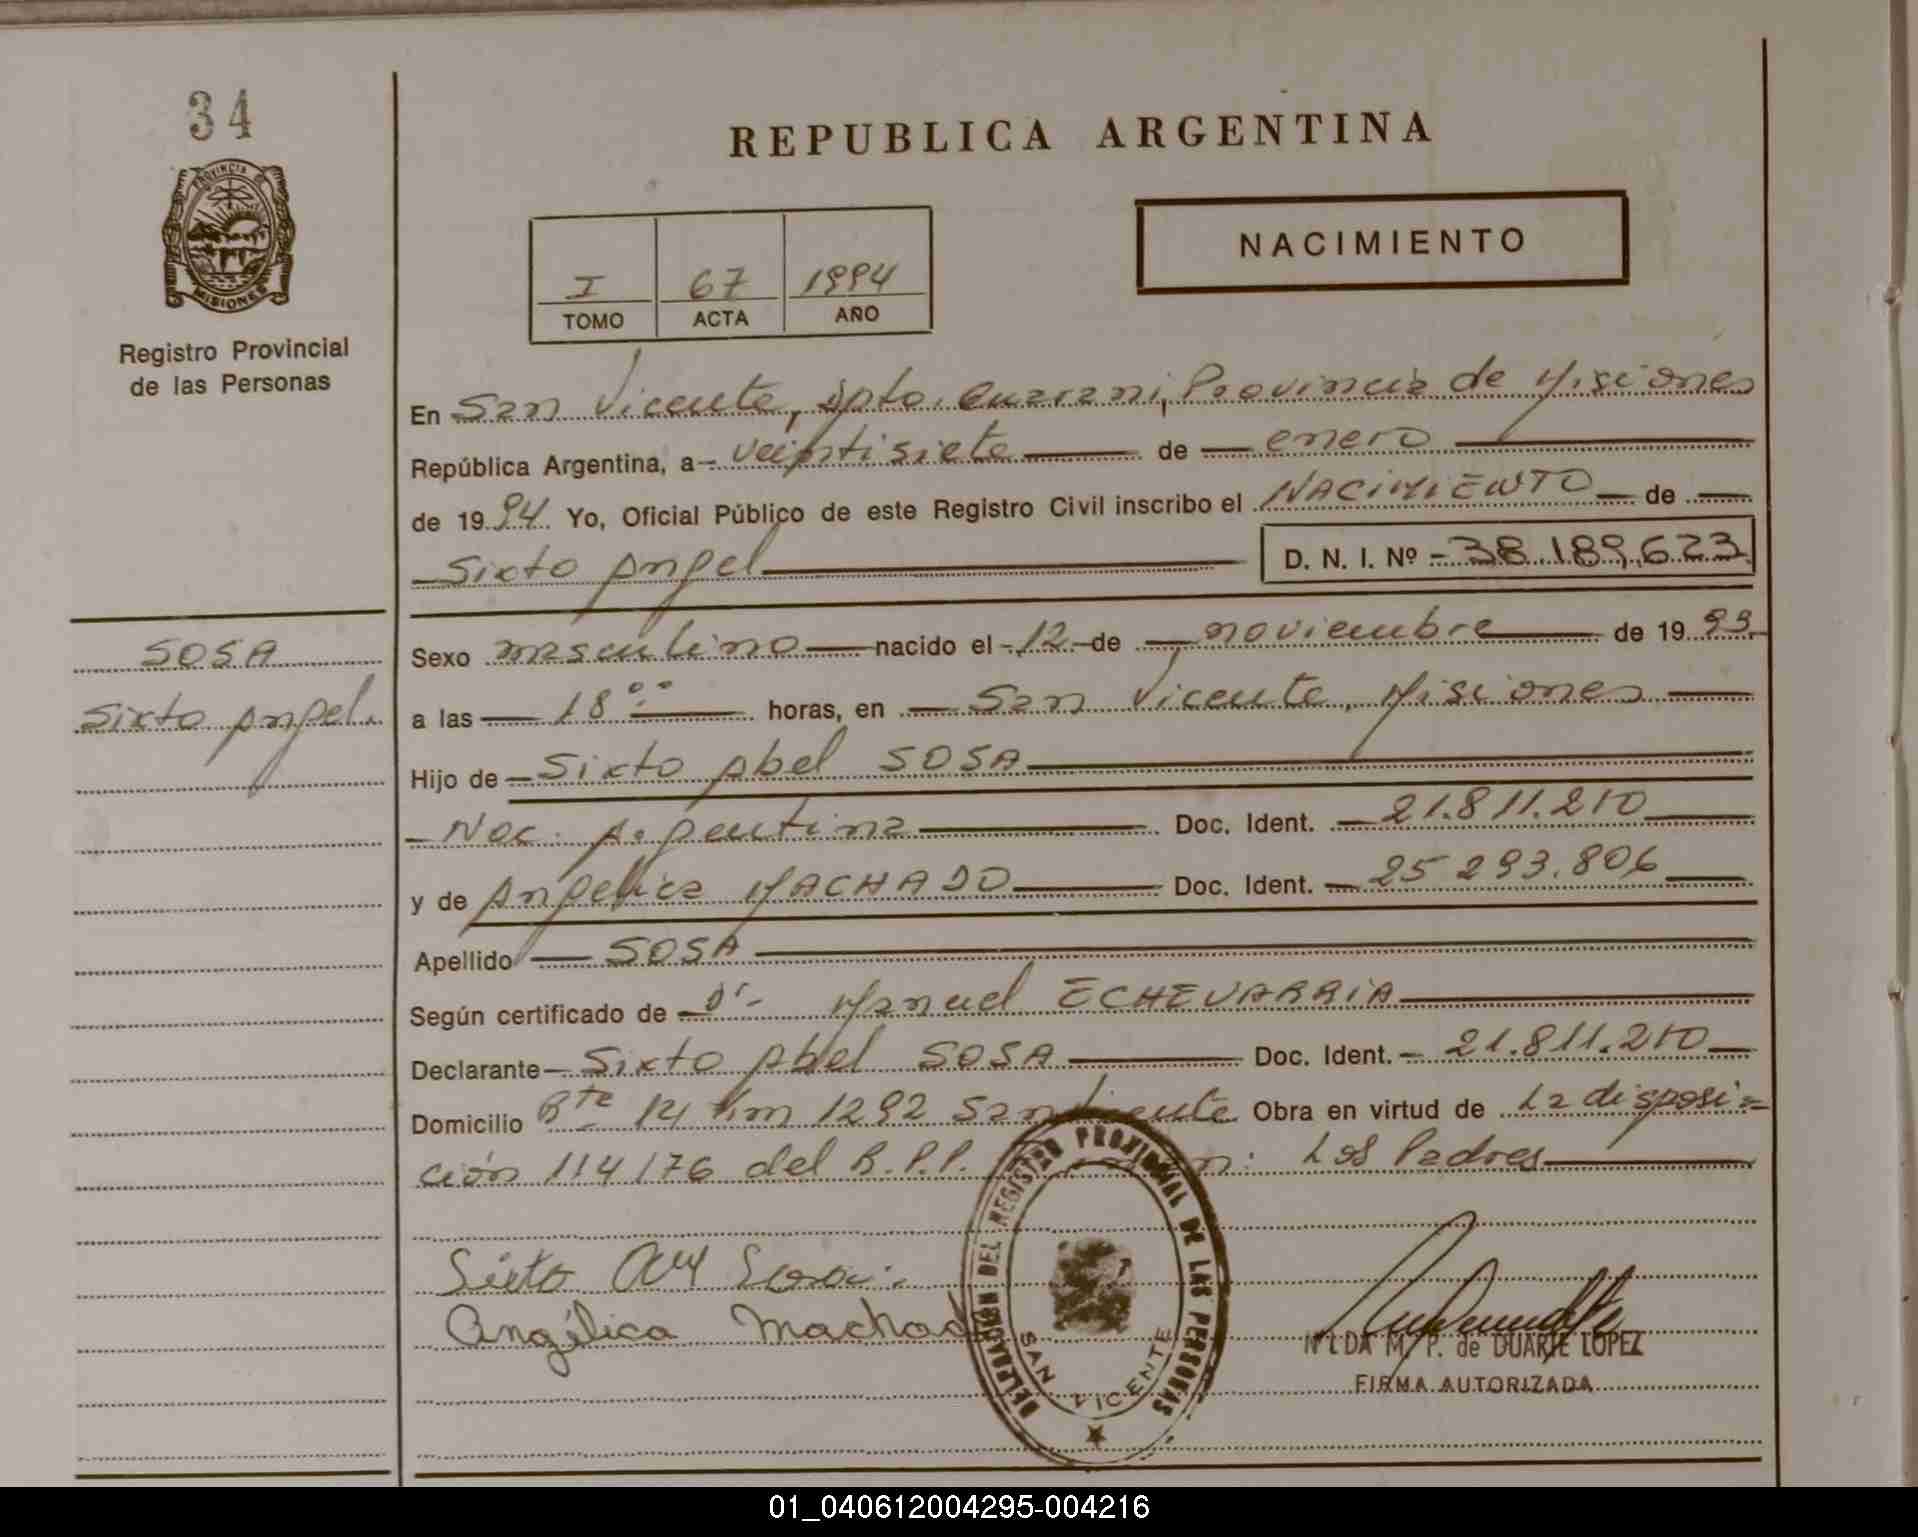 34
REPUBLICA ARGENTINA
PROVINCIA DE
MISIONES
Registro Provincial
de las Personas
NACIMIENTO
I 67 1994
TOMO ACTA AÑO
En San Vicente, Dpto. Guarani, Provincia de Misiones
República Argentina, a veintisiete de enero
de 1994 Yo, Oficial Público de este Registro Civil inscribo el NACIMIENTO de
Sixto Angel D. N. I. Nº 38.189.623
SOSA
Sixto Angel.
Sexo masculino nacido el 12 de noviembre de 1993
a las 18:00 horas, en San Vicente, Misiones
Hijo de Sixto Abel SOSA
Nac. Argentina Doc. Ident. 21.811.210
y de Angelica MACHADO Doc. Ident. 25 293.806
Apellido SOSA
Según certificado de Dr. Manuel ECHEVARRIA
Declarante Sixto Abel SOSA Doc. Ident. 21.811.210
Domicilio Rta 14 km 1292 San Vicente Obra en virtud de La disposi=
ción 114/76 del R.P.P. Los Padres
Sixto Sosa
Angélica Machado
DELEGACION DEL REGISTRO PROVINCIAL DE LAS PERSONAS
SAN VICENTE
NILDA M. P. de DUARTE LOPEZ
FIRMA AUTORIZADA
01_040612004295-004216